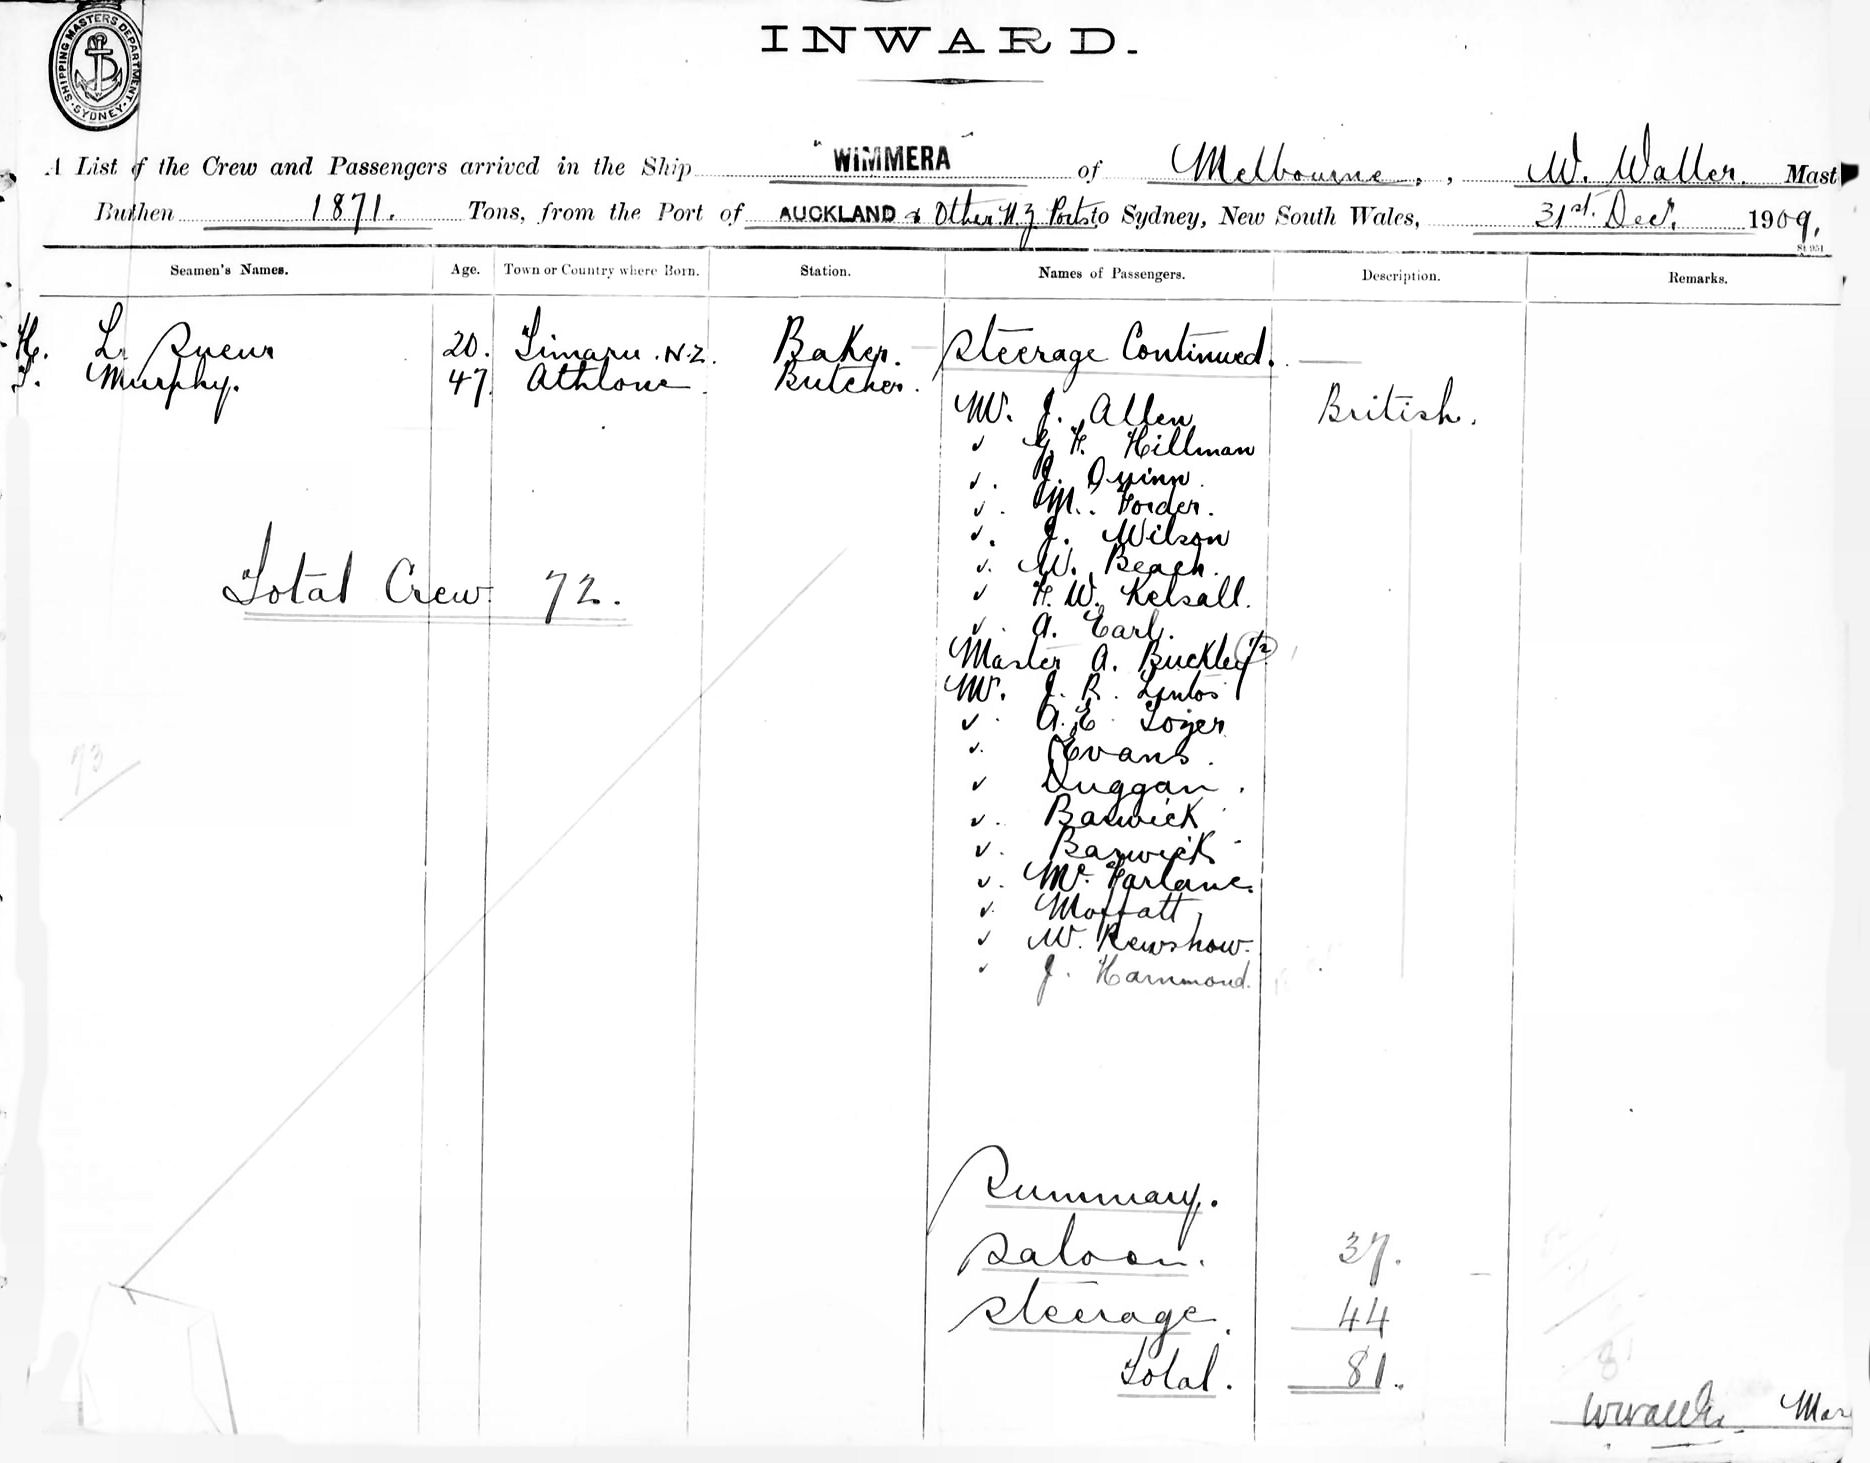 SHIPPING MASTERS DEPARTMENT. SYDNEY
INWARD.
A List of the Crew and Passengers arrived in the Ship "WIMMERA" of Melbourne, W. Waller. Mast
Burthen 1871. Tons, from the Port of AUCKLAND & Other N.Z Ports to Sydney, New South Wales, 31st. Decr. 1909.
St. 951
Seamen's Names. Age. Town or Country where Born. Station. Names of Passengers. Description. Remarks.
H. Le Sueur 20. Timaru. N.Z. Baker. Steerage Continued.
T. Murphy. 47. Athlone Butcher.
Mr. J. Allen British.
G. H. Hillman
J. Quinn
M. Forder.
J. Wilson
Total Crew 72.
W. Beach.
H. W. Kelsall.
A. Earl.
Master A. Buckley 1/2
Mr. J. R.
A. E.
Evans.
73
Duggan.
Barwick
Barwick
McFarlane.
Moffatt
W. Rewshaw.
J. Hammond.
Summary.
Saloon. 37.
Steerage. 44
Total. 81.
81
Mas